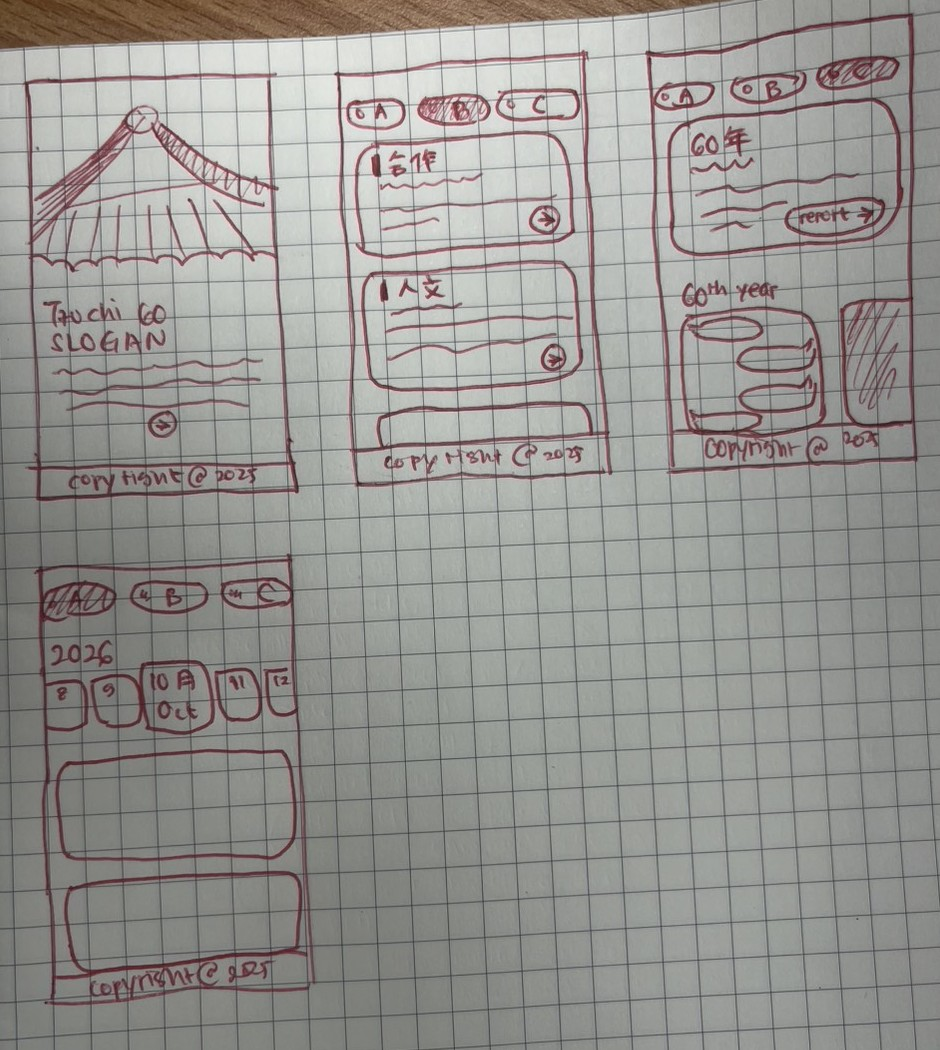 Tzu chi 60
SLOGAN
copyright @ 2025
A
B
C
合作
人文
copyright @ 2025
A
B
C
60年
report
60th year
copyright @ 2025
A
B
C
2026
8
9
10月
Oct
11
12
copyright @ 2025